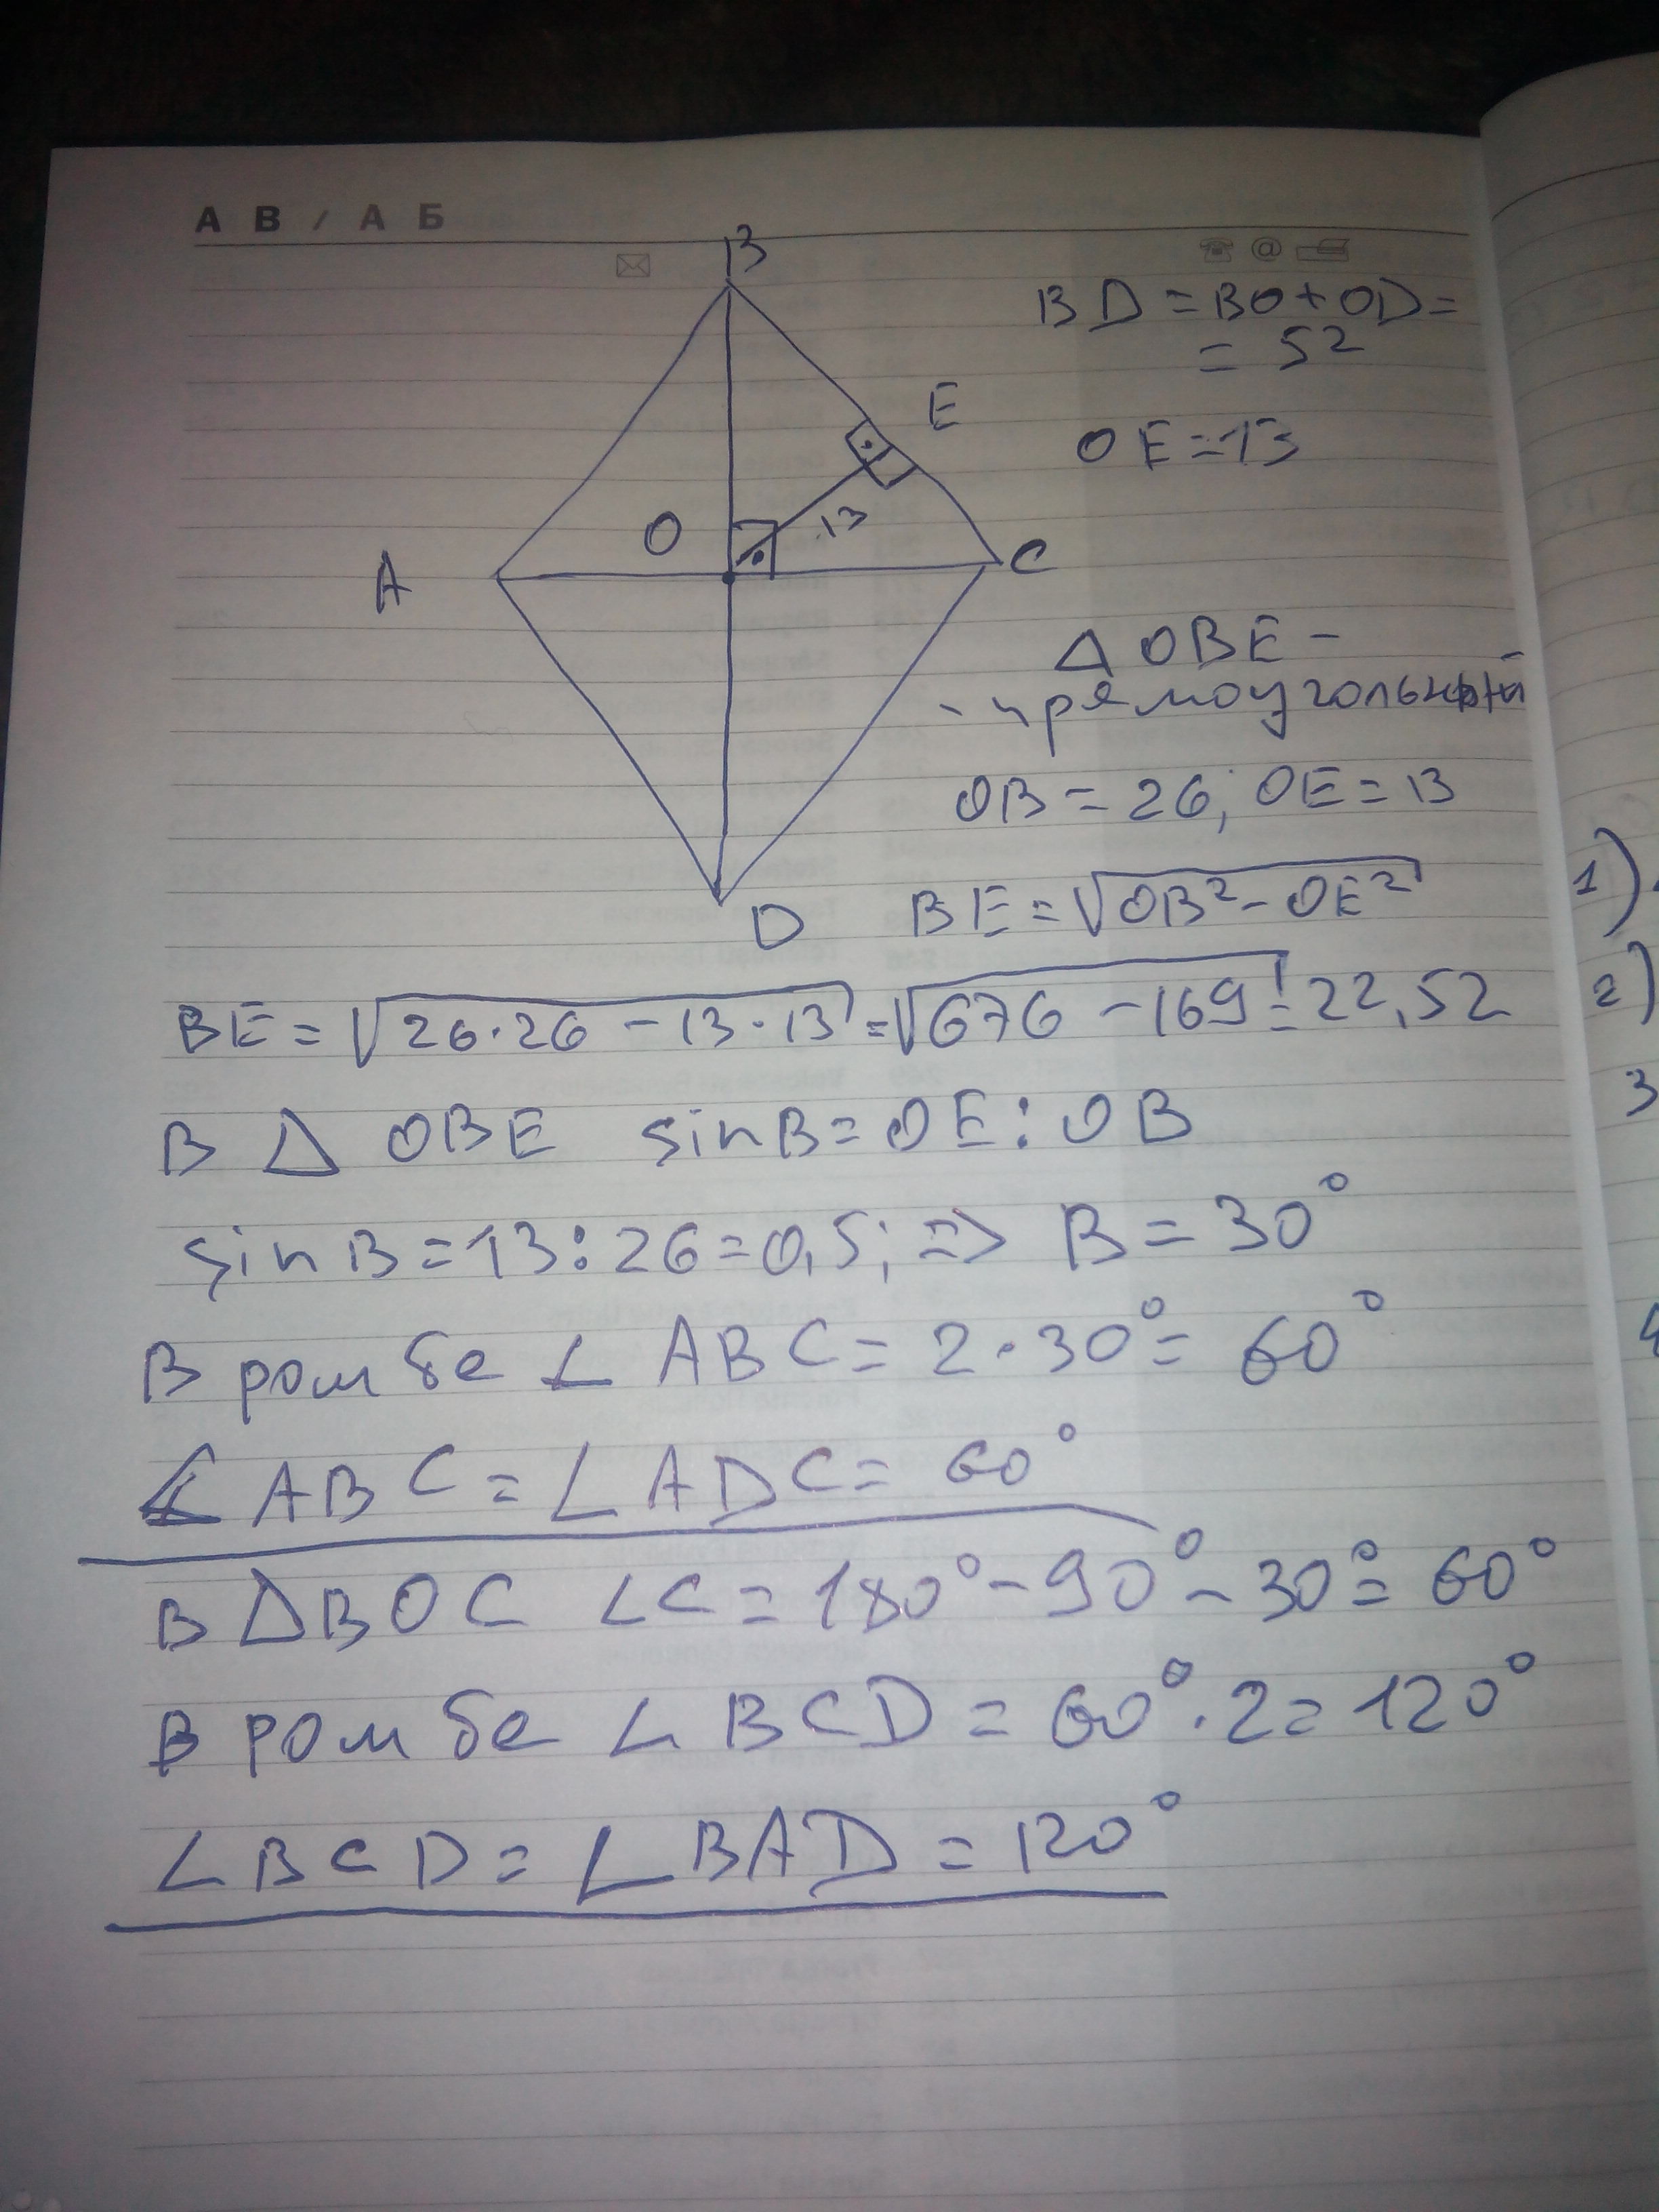 А В / А Б
B
BD = BO + OD =
= 52
E
OE = 13
O
13
A
C
Δ OBE -
- прямоугольный
OB = 26; OE = 13
D
BE = √OB² - OE²
1)
BE = √26·26 - 13·13 = √676 - 169 = 22,52
2)
В Δ OBE sin B = OE : OB
3
sin B = 13 : 26 = 0,5; => B = 30°
В ромбе ∠ ABC = 2·30° = 60°
∠ ABC = ∠ ADC = 60°
В Δ BOC ∠C = 180° - 90° - 30° = 60°
В ромбе ∠ BCD = 60°·2 = 120°
∠ BCD = ∠ BAD = 120°